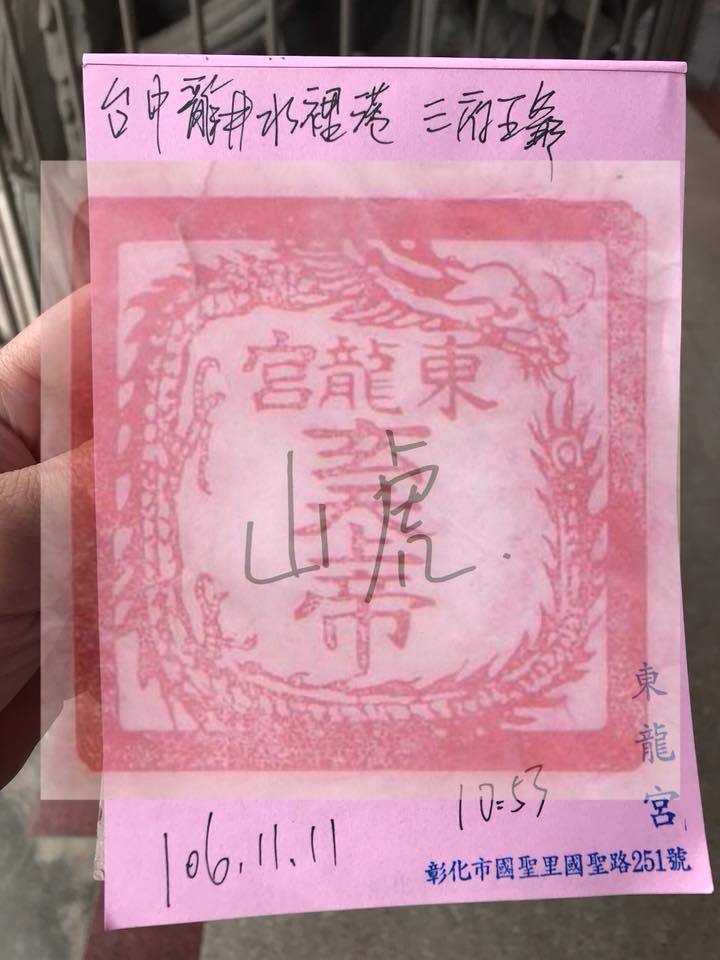 台中龍井水裡港 三府王爺
東龍宮
玄天上帝
山虎.
10:53
東龍宮
106.11.11
彰化市國聖里國聖路251號